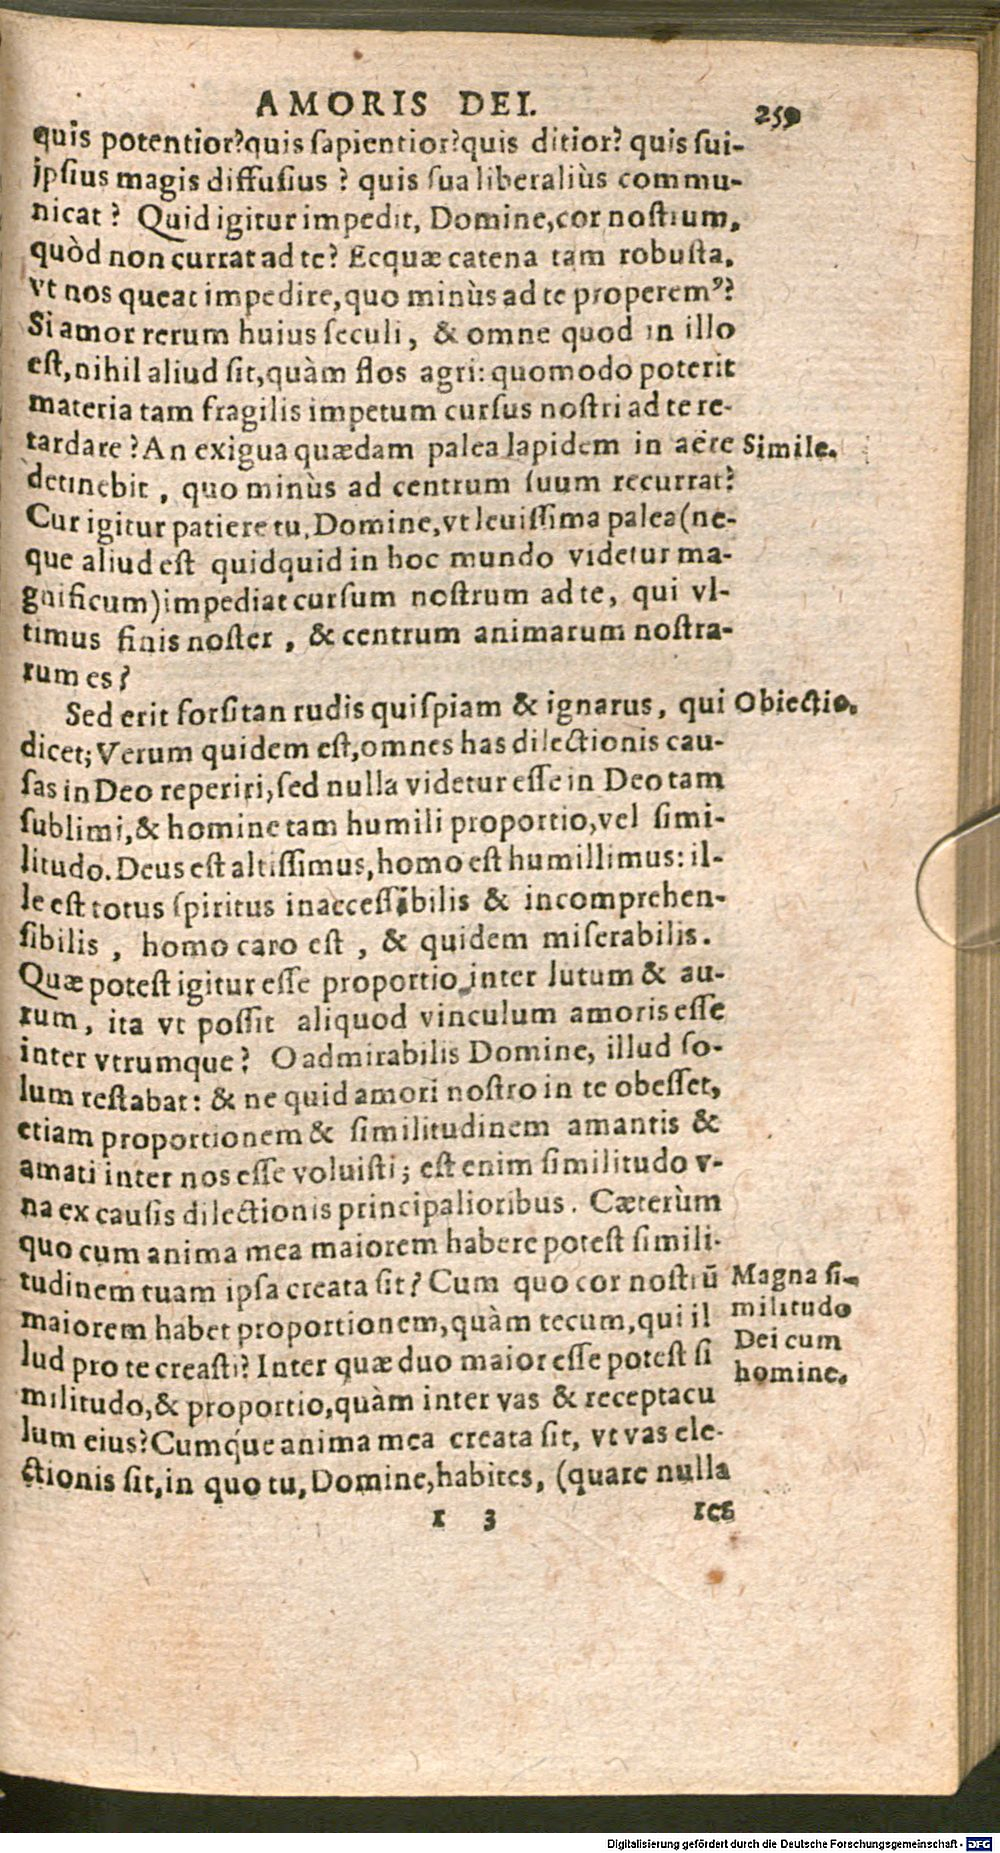 AMORIS DEI. 259
quis potentior?quis ſapientior?quis ditior? quis ſui-
ipſius magis diffuſius ? quis ſua liberaliùs commu-
nicat ? Quid igitur impedit, Domine,cor noſtrum,
quòd non currat ad te? Ecquæ catena tam robuſta,
vt nos queat impedire,quo minùs ad te properemꝰ?
Si amor rerum huius ſeculi, & omne quod in illo
eſt,nihil aliud ſit,quàm flos agri: quomodo poterit
materia tam fragilis impetum curſus noſtri ad te re-
tardare ?An exigua quædam palea lapidem in aëre Simile.
detinebit, quo minùs ad centrum ſuum recurrat?
Cur igitur patiere tu, Domine,vt leuiſſima palea(ne-
que aliud eſt quidquid in hoc mundo videtur ma-
gnificum)impediat curſum noſtrum ad te, qui vl-
timus finis noſter, & centrum animarum noſtra-
rum es?
Sed erit forſitan rudis quiſpiam & ignarus, qui Obiectio.
dicet; Verum quidem eſt,omnes has dilectionis cau-
ſas in Deo reperiri,ſed nulla videtur eſſe in Deo tam
ſublimi,& homine tam humili proportio,vel ſimi-
litudo. Deus eſt altiſſimus,homo eſt humillimus: il-
le eſt totus ſpiritus inacceſſibilis & incomprehen-
ſibilis , homo caro eſt , & quidem miſerabilis.
Quæ poteſt igitur eſſe proportio inter lutum & au-
rum, ita vt poſſit aliquod vinculum amoris eſſe
inter vtrumque? O admirabilis Domine, illud ſo-
lum reſtabat: & ne quid amori noſtro in te obeſſet,
etiam proportionem & ſimilitudinem amantis &
amati inter nos eſſe voluiſti; eſt enim ſimilitudo v-
na ex cauſis dilectionis principalioribus. Cæterùm
quo cum anima mea maiorem habere poteſt ſimili-
tudinem tuam ipſa creata ſit? Cum quo cor noſtrũ Magna ſi-
maiorem habet proportionem,quàm tecum,qui il militudo
lud pro te creaſti? Inter quæ duo maior eſſe poteſt ſi Dei cum
militudo,& proportio,quàm inter vas & receptacu homine.
lum eius?Cumque anima mea creata ſit, vt vas ele-
ctionis ſit,in quo tu,Domine,habites, (quare nulla
r 3 res
Digitalisierung gefördert durch die Deutsche Forschungsgemeinschaft - DFG